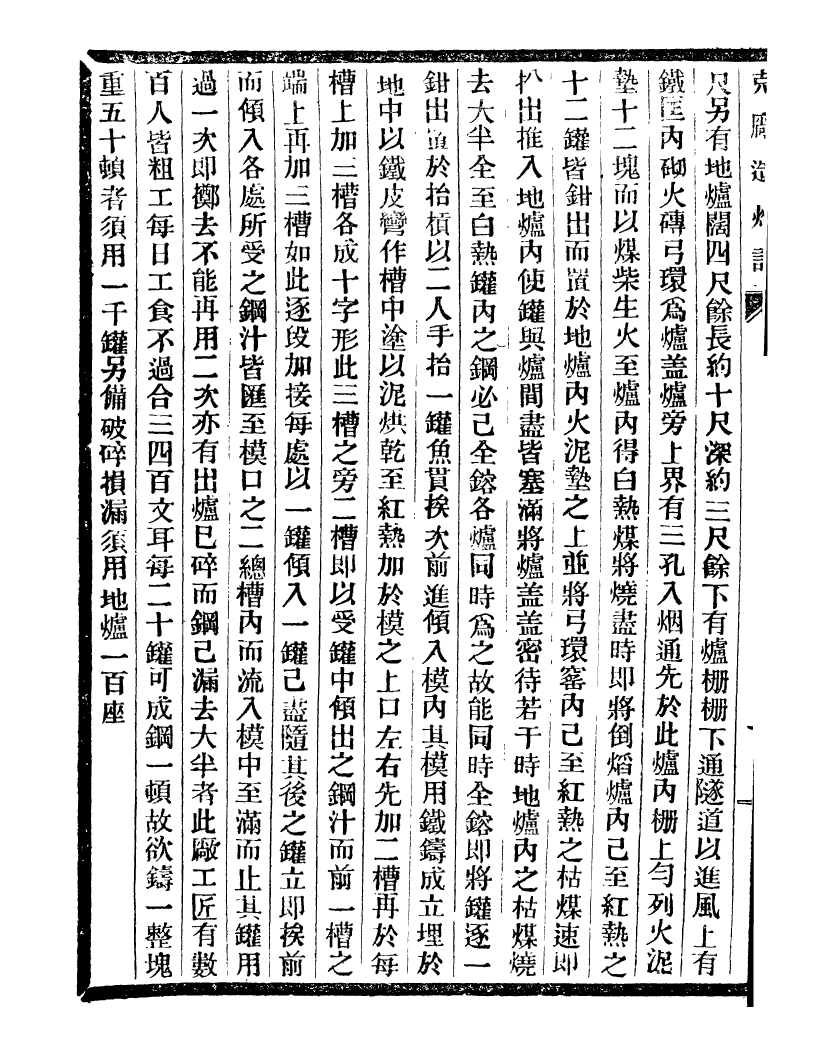 克廠造炮記
尺另有地爐闊四尺餘長約十尺深約三尺餘下有爐柵柵下通隧道以進風上有
鐵匡內砌火磚弓環爲爐盖爐旁上界有三孔入烟通先於此爐內柵上勻列火泥
墊十二塊而以煤柴生火至爐內得白熱煤將燒盡時即將倒熖爐內己至紅熱之
十二罐皆鉗出而置於地爐內火泥墊之上並將弓環窰內己至紅熱之枯煤速即
扒出推入地爐內使罐與爐間盡皆塞滿將爐盖盖密待若干時地爐內之枯煤燒
去大半全至白熱罐內之鋼必己全鎔各爐同時爲之故能同時全鎔即將罐逐一
鉗出置於抬槓以二人手抬一罐魚貫挨次前進傾入模內其模用鐵鑄成立埋於
地中以鐵皮彎作槽中塗以泥烘乾至紅熱加於模之上口左右先加二槽再於每
槽上加三槽各成十字形此三槽之旁二槽即以受罐中傾出之鋼汁而前一槽之
端上再加三槽如此逐段加接每處以一罐傾入一罐己盡隨其後之罐立即挨前
而傾入各處所受之鋼汁皆匯至模口之二總槽內而流入模中至滿而止其罐用
過一次即擲去不能再用二次亦有出爐巳碎而鋼己漏去大半者此廠工匠有數
百人皆粗工每日工食不過合三四百文耳每二十罐可成鋼一頓故欲鑄一整塊
重五十頓者須用一千罐另備破碎損漏須用地爐一百座